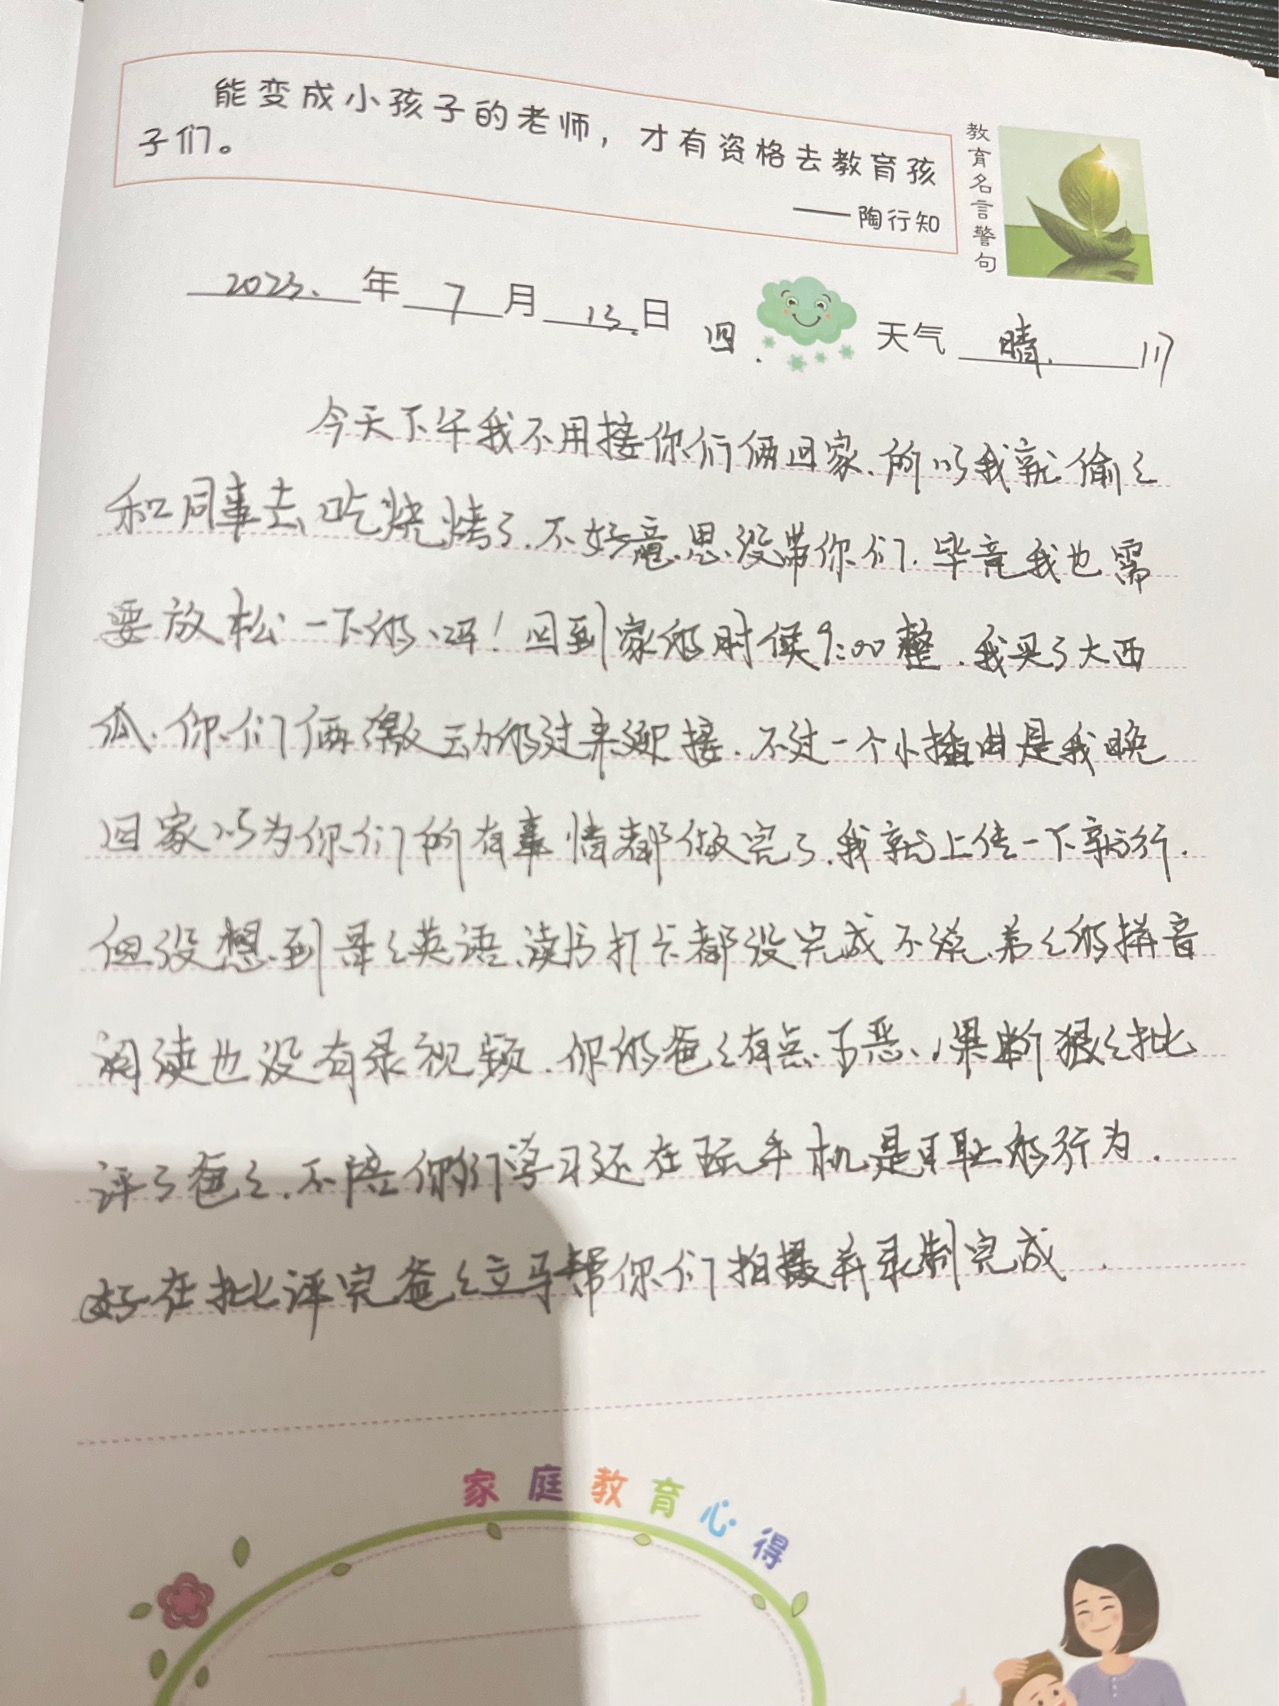 能变成小孩子的老师，才有资格去教育孩
子们。
——陶行知
教育名言警句
2023. 年 7 月 13. 日 四. 天气 晴.
今天下午我不用接你们俩回家.所以我就偷々
和同事去吃烧烤了.不好意思没带你们.毕竟我也需
要放松一下的呀！回到家的时候9:00整.我买了大西
瓜.你们俩激动的过来迎接.不过一个小插曲是我晚
回家以为你们所有事情都做完了.我就上传一下就行.
但没想到哥々英语、读书打卡都没完成不说.弟々的拼音
阅读也没有录视频.你的爸々有点可恶、果断狠々批
评了爸々.不陪你们学习还在玩手机是可耻的行为.
好在批评完爸々立马帮你们拍摄并录制完成.
家庭教育心得